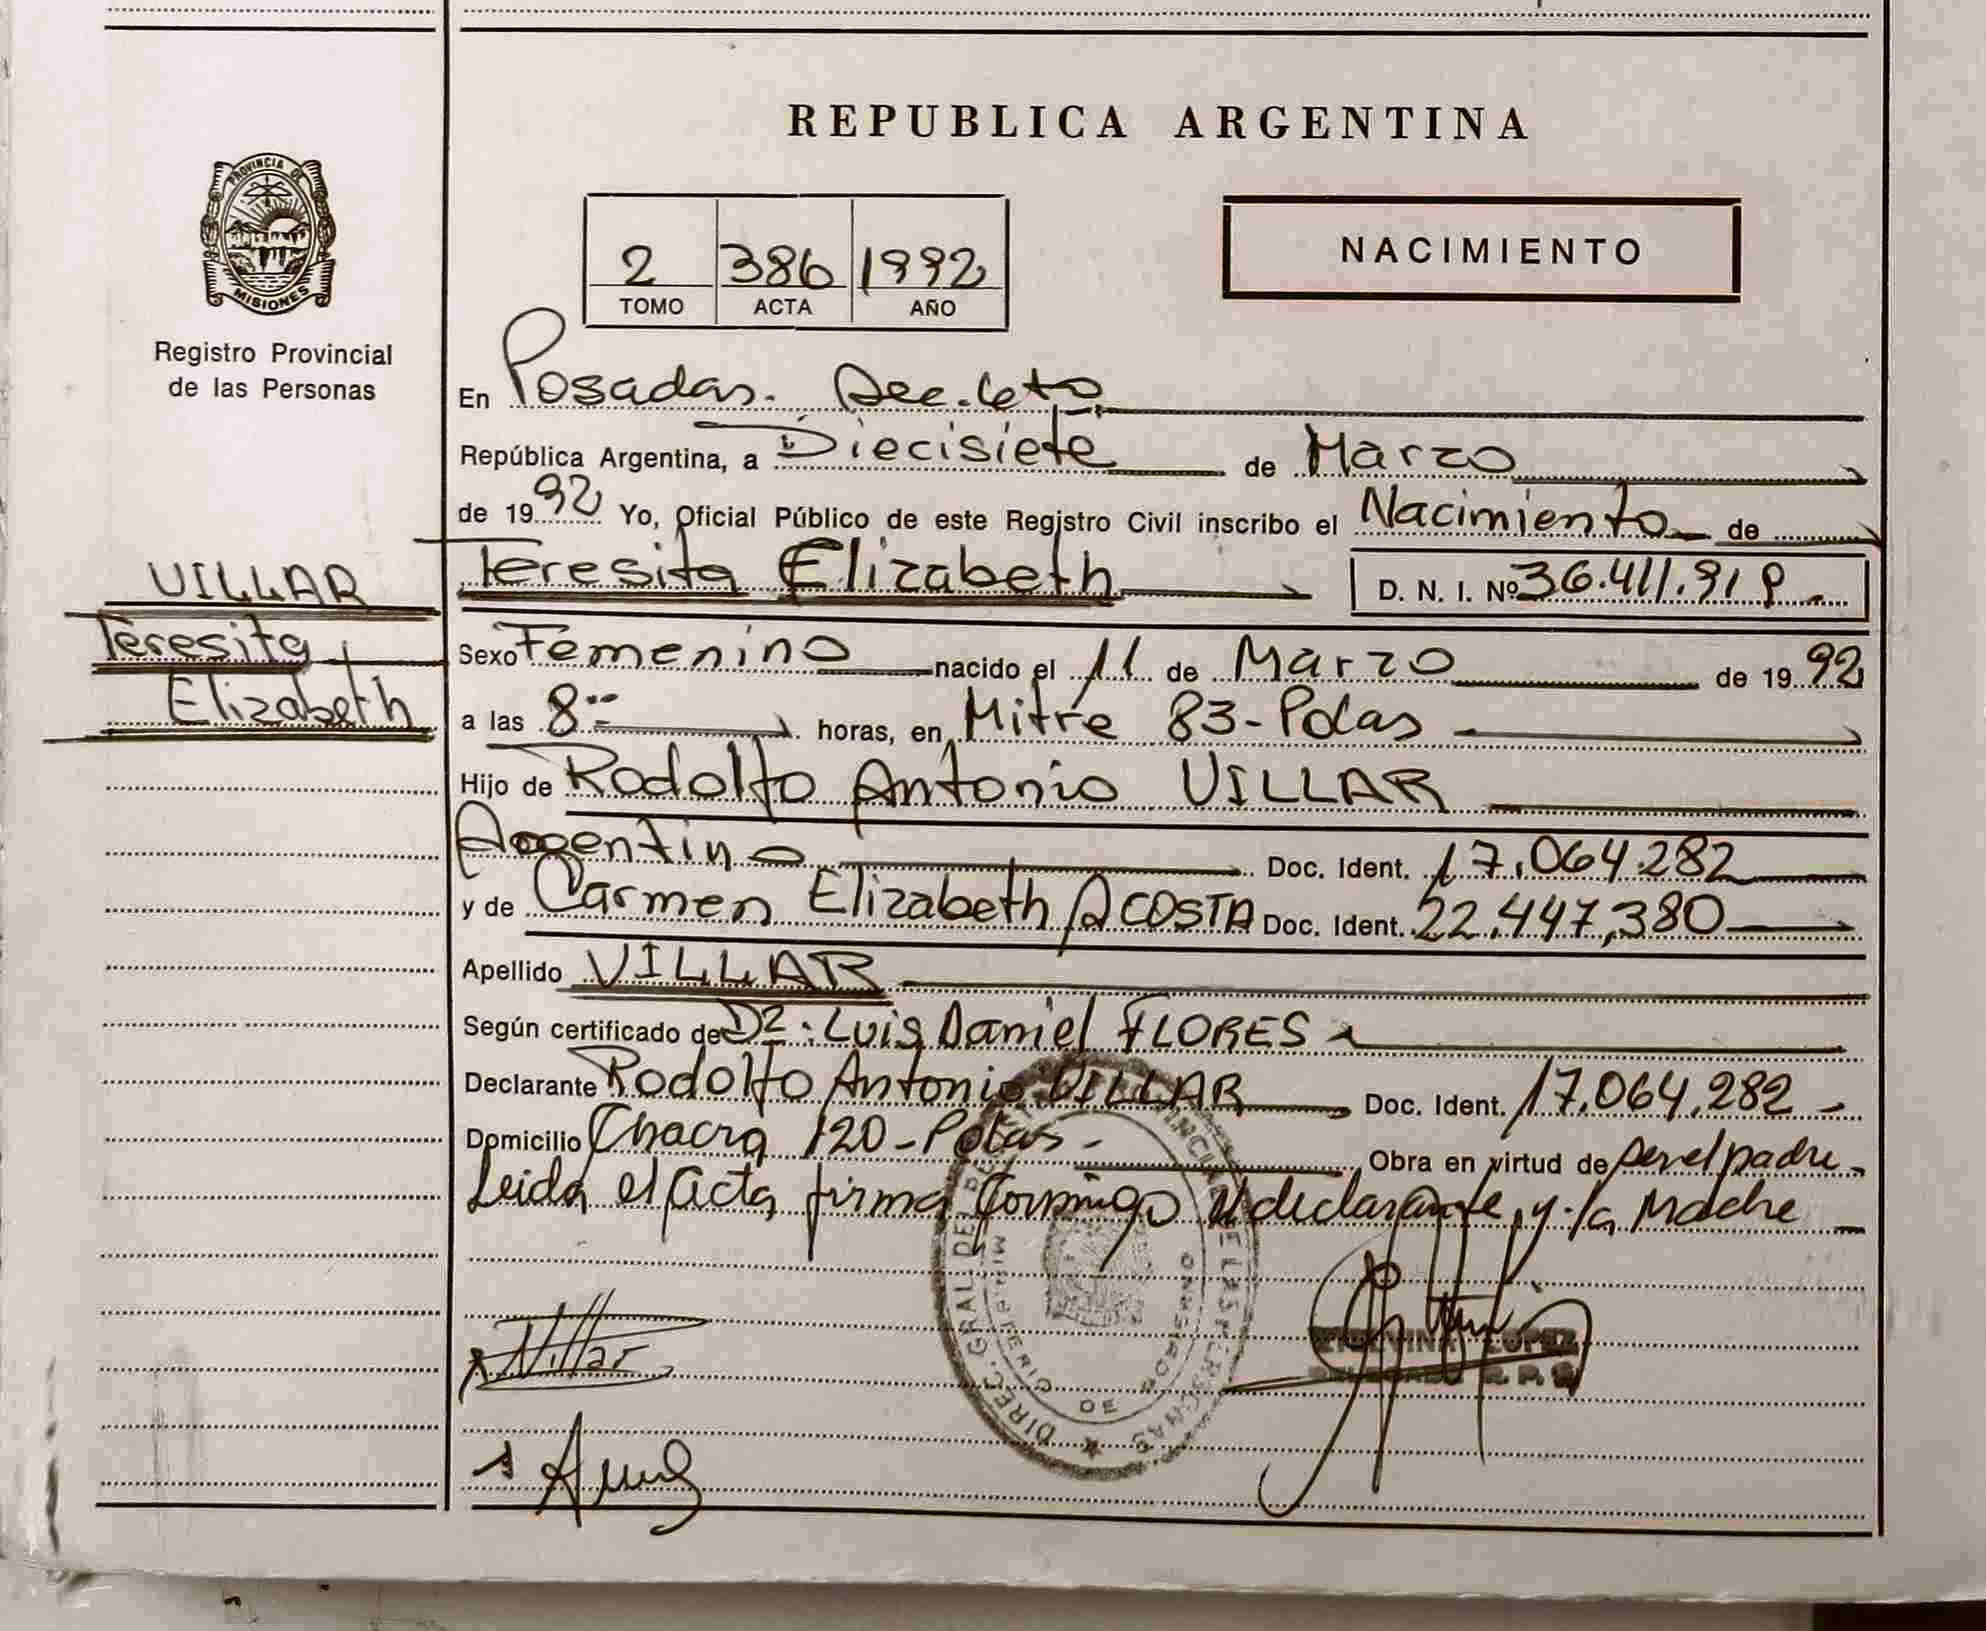 REPUBLICA ARGENTINA
PROVINCIA DE MISIONES
Registro Provincial
de las Personas
2 386 1992
TOMO ACTA AÑO
NACIMIENTO
En Posadas.
República Argentina, a Diecisiete de Marzo
de 1992 Yo, Oficial Público de este Registro Civil inscribo el Nacimiento de
Teresita Elizabeth D. N. I. Nº 36.411.91
VILLAR
Teresita
Elizabeth
Sexo Femenino nacido el 11 de Marzo de 1992
a las 8 horas, en Mitre 83-Pdas
Hijo de Rodolfo Antonio VILLAR
Argentino Doc. Ident. 17.064.282
y de Carmen Elizabeth ACOSTA Doc. Ident. 22.447,380
Apellido VILLAR
Según certificado de Luis Daniel FLORES
Declarante Rodolfo Antonio VILLAR Doc. Ident. 17.064.282
Domicilio Chacra 120-Pdas- Obra en virtud de ser el padre
Leida el acta, firma conmigo el declarante, y la Madre
Villar
LOPEZ
DIREC. GRAL DE
MINISTERIO DE